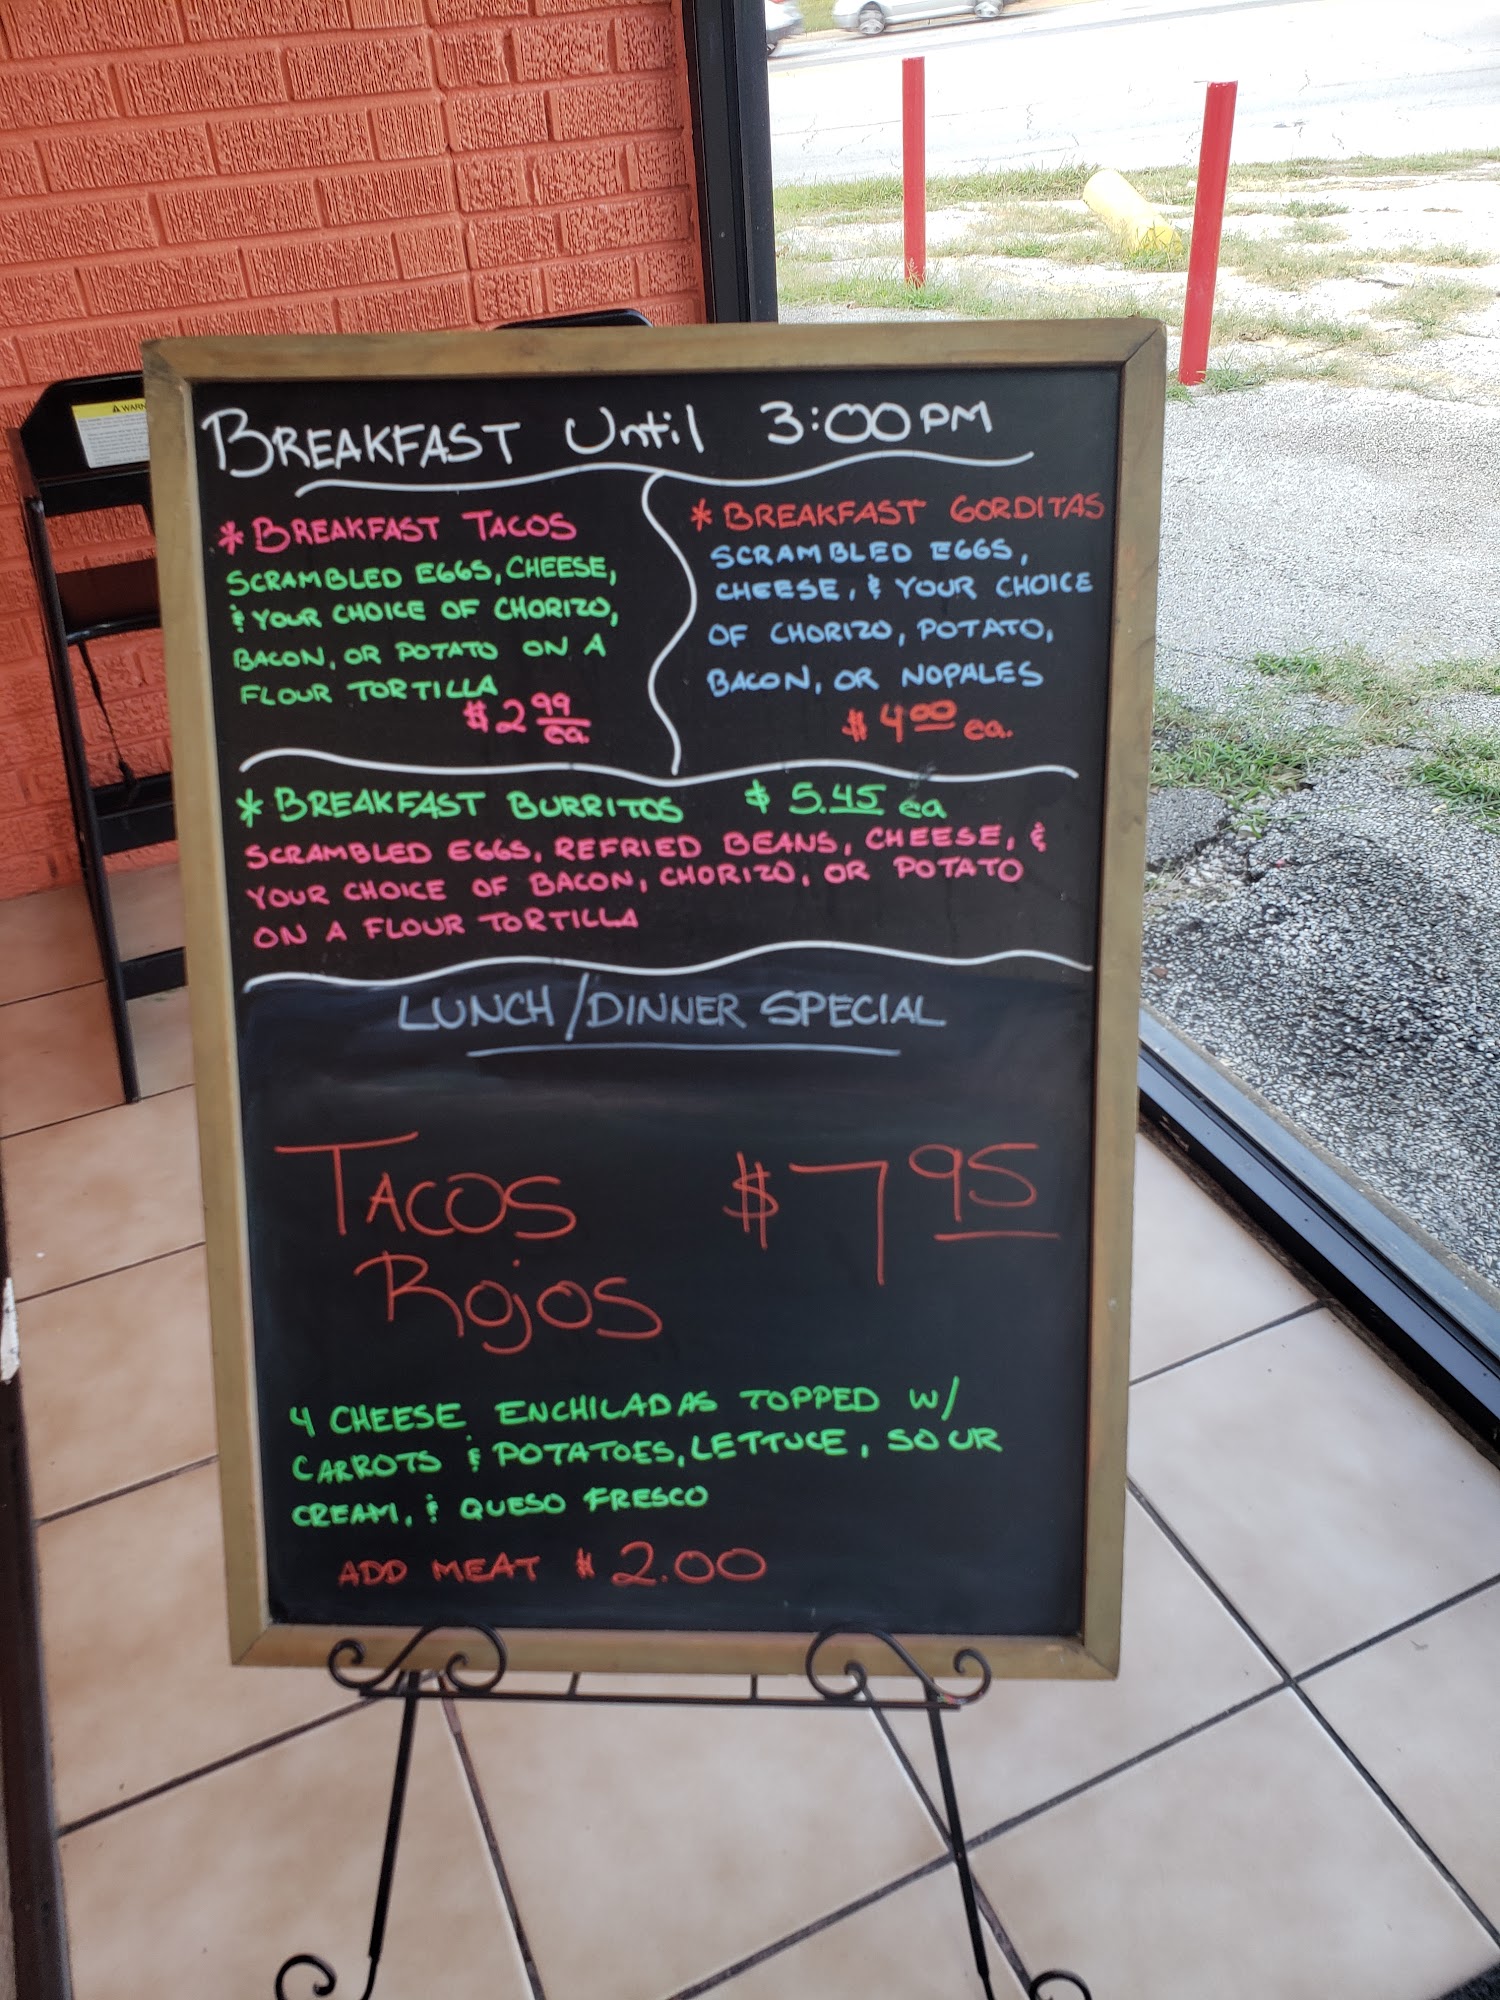 BREAKFAST Until 3:00PM
* BREAKFAST TACOS
SCRAMBLED EGGS, CHEESE,
& YOUR CHOICE OF CHORIZO,
BACON, OR POTATO ON A
FLOUR TORTILLA
$2 99 ea.
* BREAKFAST GORDITAS
SCRAMBLED EGGS,
CHEESE, & YOUR CHOICE
OF CHORIZO, POTATO,
BACON, OR NOPALES
$4 00 ea.
* BREAKFAST BURRITOS $5.45 ea
SCRAMBLED EGGS, REFRIED BEANS, CHEESE, &
YOUR CHOICE OF BACON, CHORIZO, OR POTATO
ON A FLOUR TORTILLA
LUNCH/DINNER SPECIAL
TACOS $7 95
ROJOS
4 CHEESE ENCHILADAS TOPPED W/
CARROTS & POTATOES, LETTUCE, SOUR
CREAM, & QUESO FRESCO
ADD MEAT $2.00